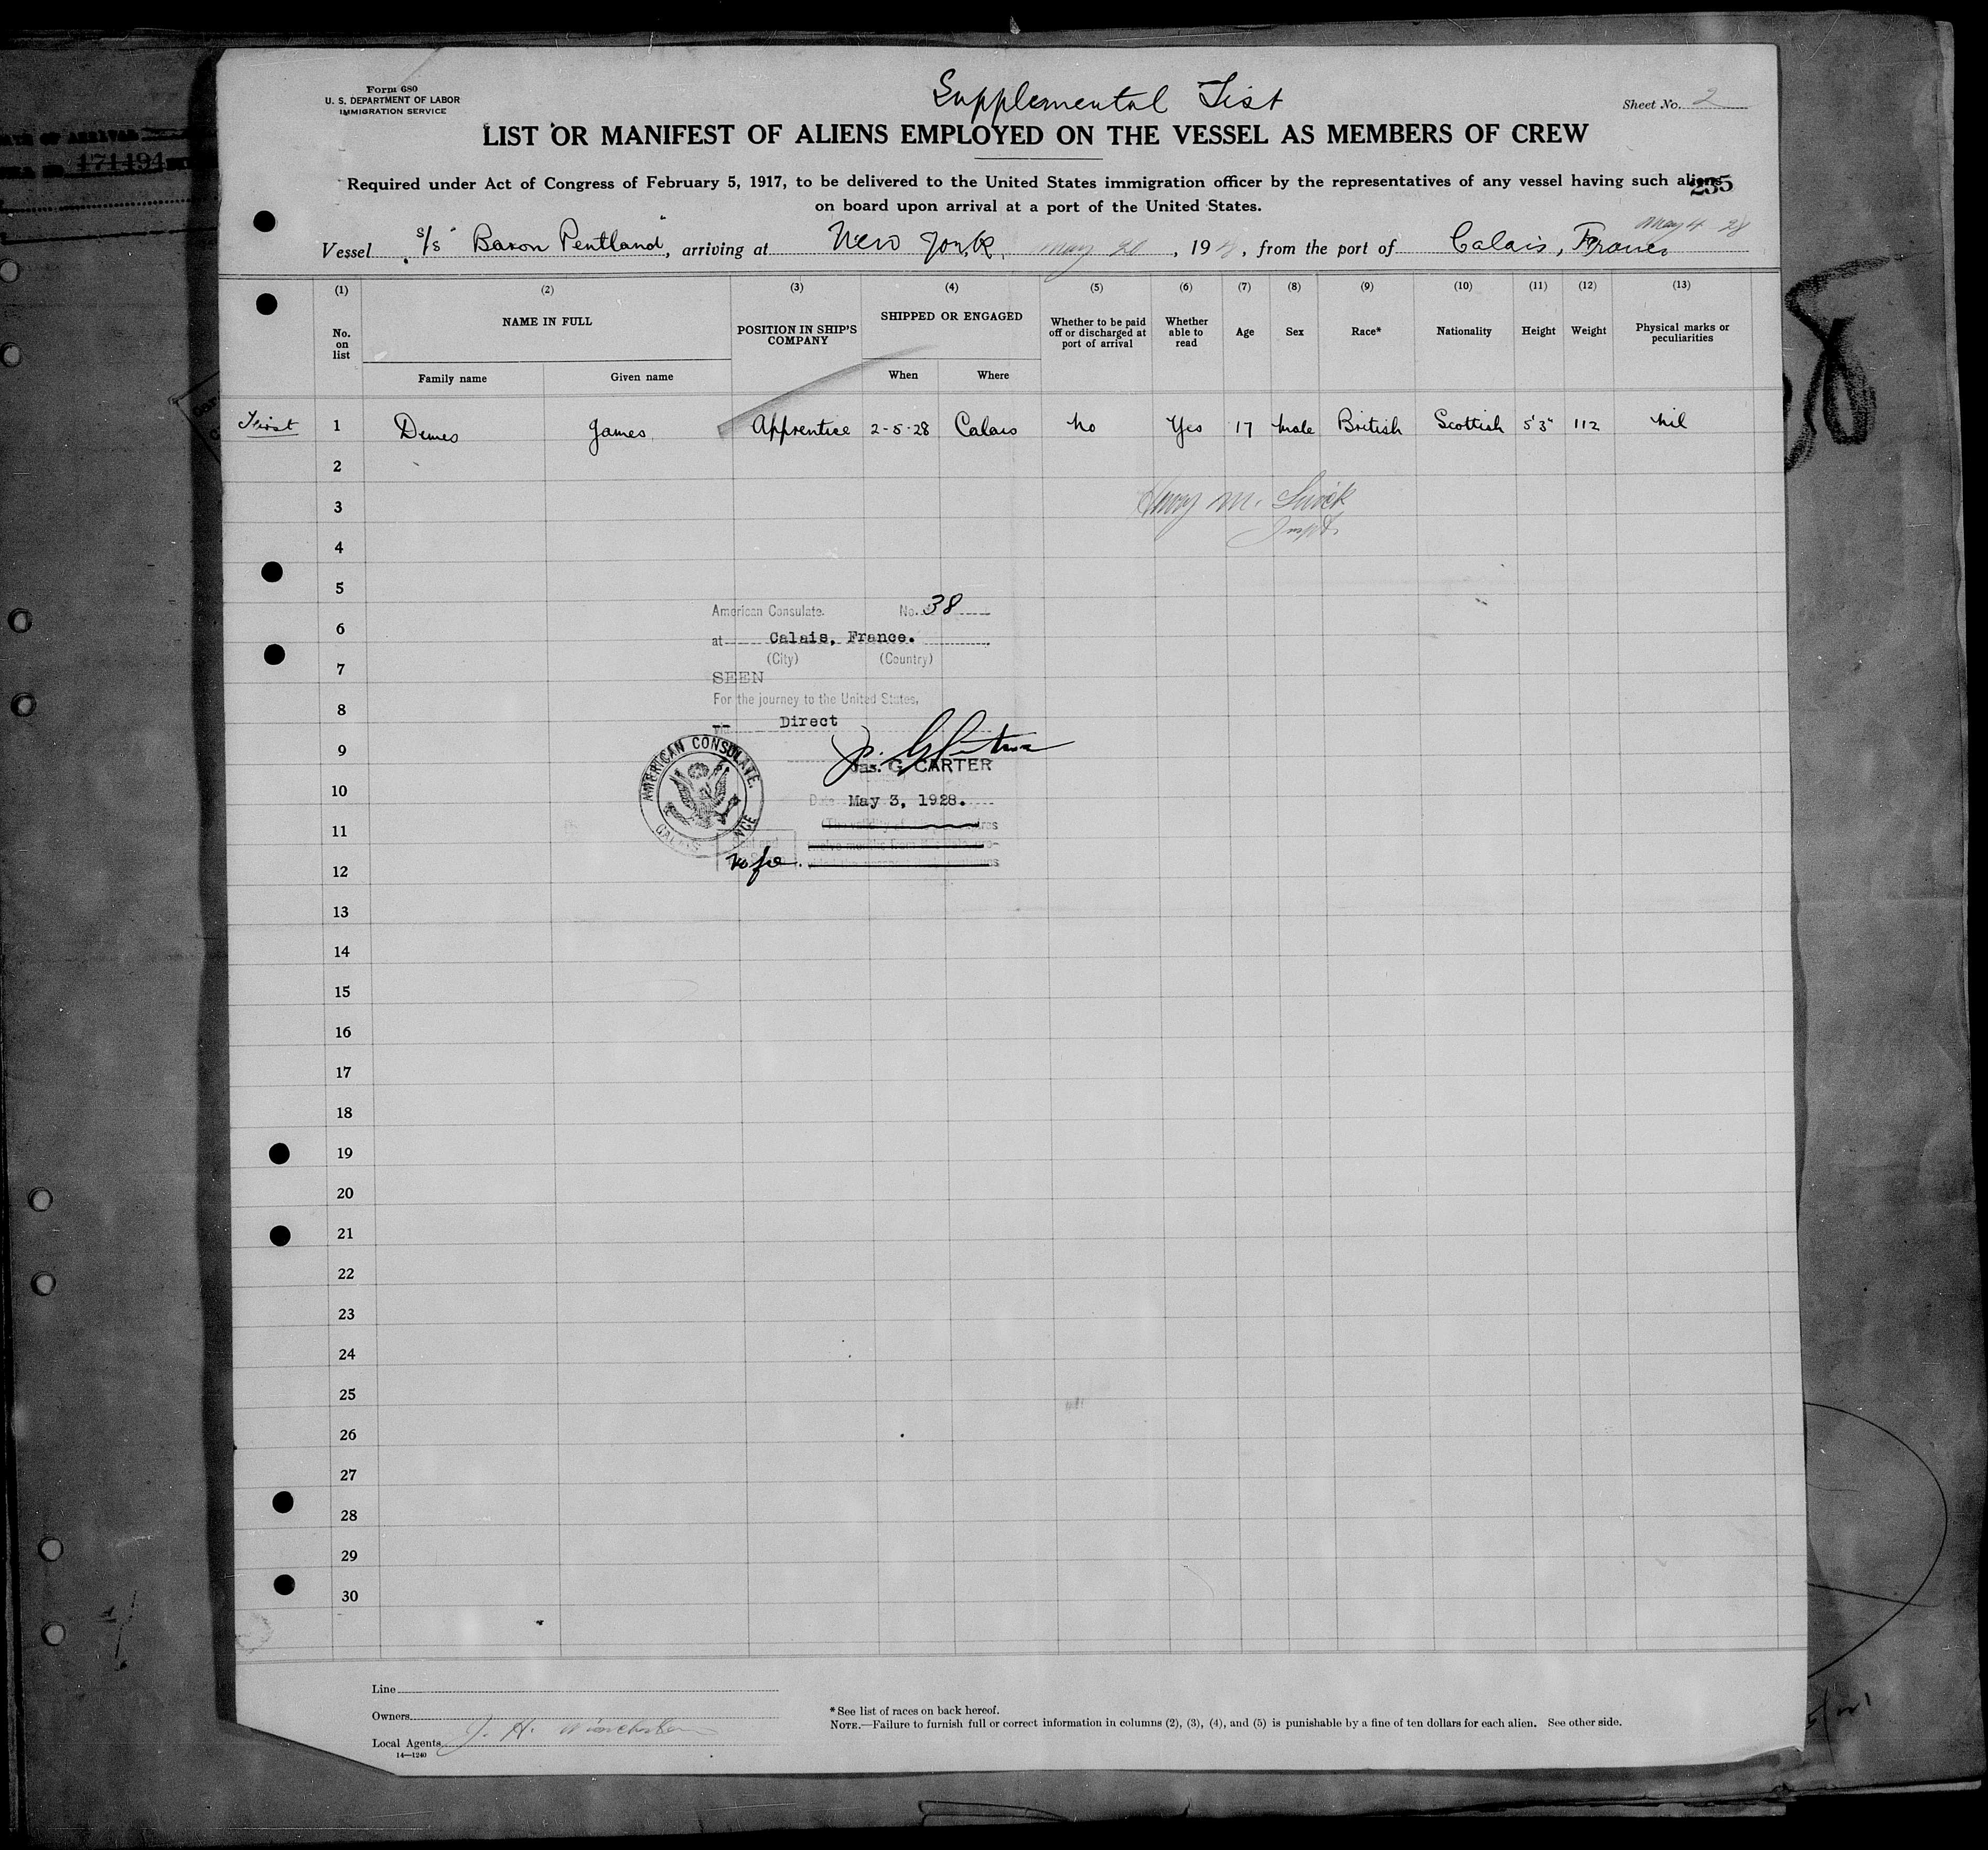 Form 680
U. S. DEPARTMENT OF LABOR
IMMIGRATION SERVICE
Supplemental List
Sheet No. 2
LIST OR MANIFEST OF ALIENS EMPLOYED ON THE VESSEL AS MEMBERS OF CREW
Required under Act of Congress of February 5, 1917, to be delivered to the United States immigration officer by the representatives of any vessel having such aliens
on board upon arrival at a port of the United States.
235
May 4 28
Vessel s/s "Baron Pentland", arriving at New York, May 20, 1928, from the port of Calais, France
(1) (2) (3) (4) (5) (6) (7) (8) (9) (10) (11) (12) (13)
No. on list
NAME IN FULL
Family name
Given name
POSITION IN SHIP'S COMPANY
SHIPPED OR ENGAGED
When
Where
Whether to be paid off or discharged at port of arrival
Whether able to read
Age
Sex
Race*
Nationality
Height
Weight
Physical marks or peculiarities
First 1 James Apprentice 2-5-28 Calais No Yes 17 Male British Scottish 5'3" 112 Nil
2
3
Henry M.
Inspt.
4
5
6
7
8
9
10
11
12
13
14
15
16
17
18
19
20
21
22
23
24
25
26
27
28
29
30
American Consulate. No. 38
at Calais, France.
(City) (Country)
SEEN
For the journey to the United States,
Direct
Jas. G. CARTER
Date May 3, 1928.
AMERICAN CONSULATE,
CALAIS
No fee.
Line
Owners
J. H. Winchester
Local Agents
14—1240
*See list of races on back hereof.
NOTE.—Failure to furnish full or correct information in columns (2), (3), (4), and (5) is punishable by a fine of ten dollars for each alien. See other side.
171494